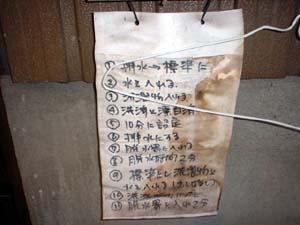 ① 排水→標準に
② 水を入れる
③ 洗濯物入れる
④ 洗濯と漂白済
⑤ 10分に設定
⑥ 排水にする
⑦ 脱水層に入れる
⑧ 脱水 2分
⑨ 標準とし洗濯物と
水を入れる
⑩ 洗濯
⑪ 脱水層に入れ2分